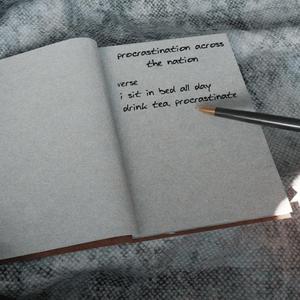 procrastination across
the nation
verse
i sit in bed all day
drink tea, procrastinate